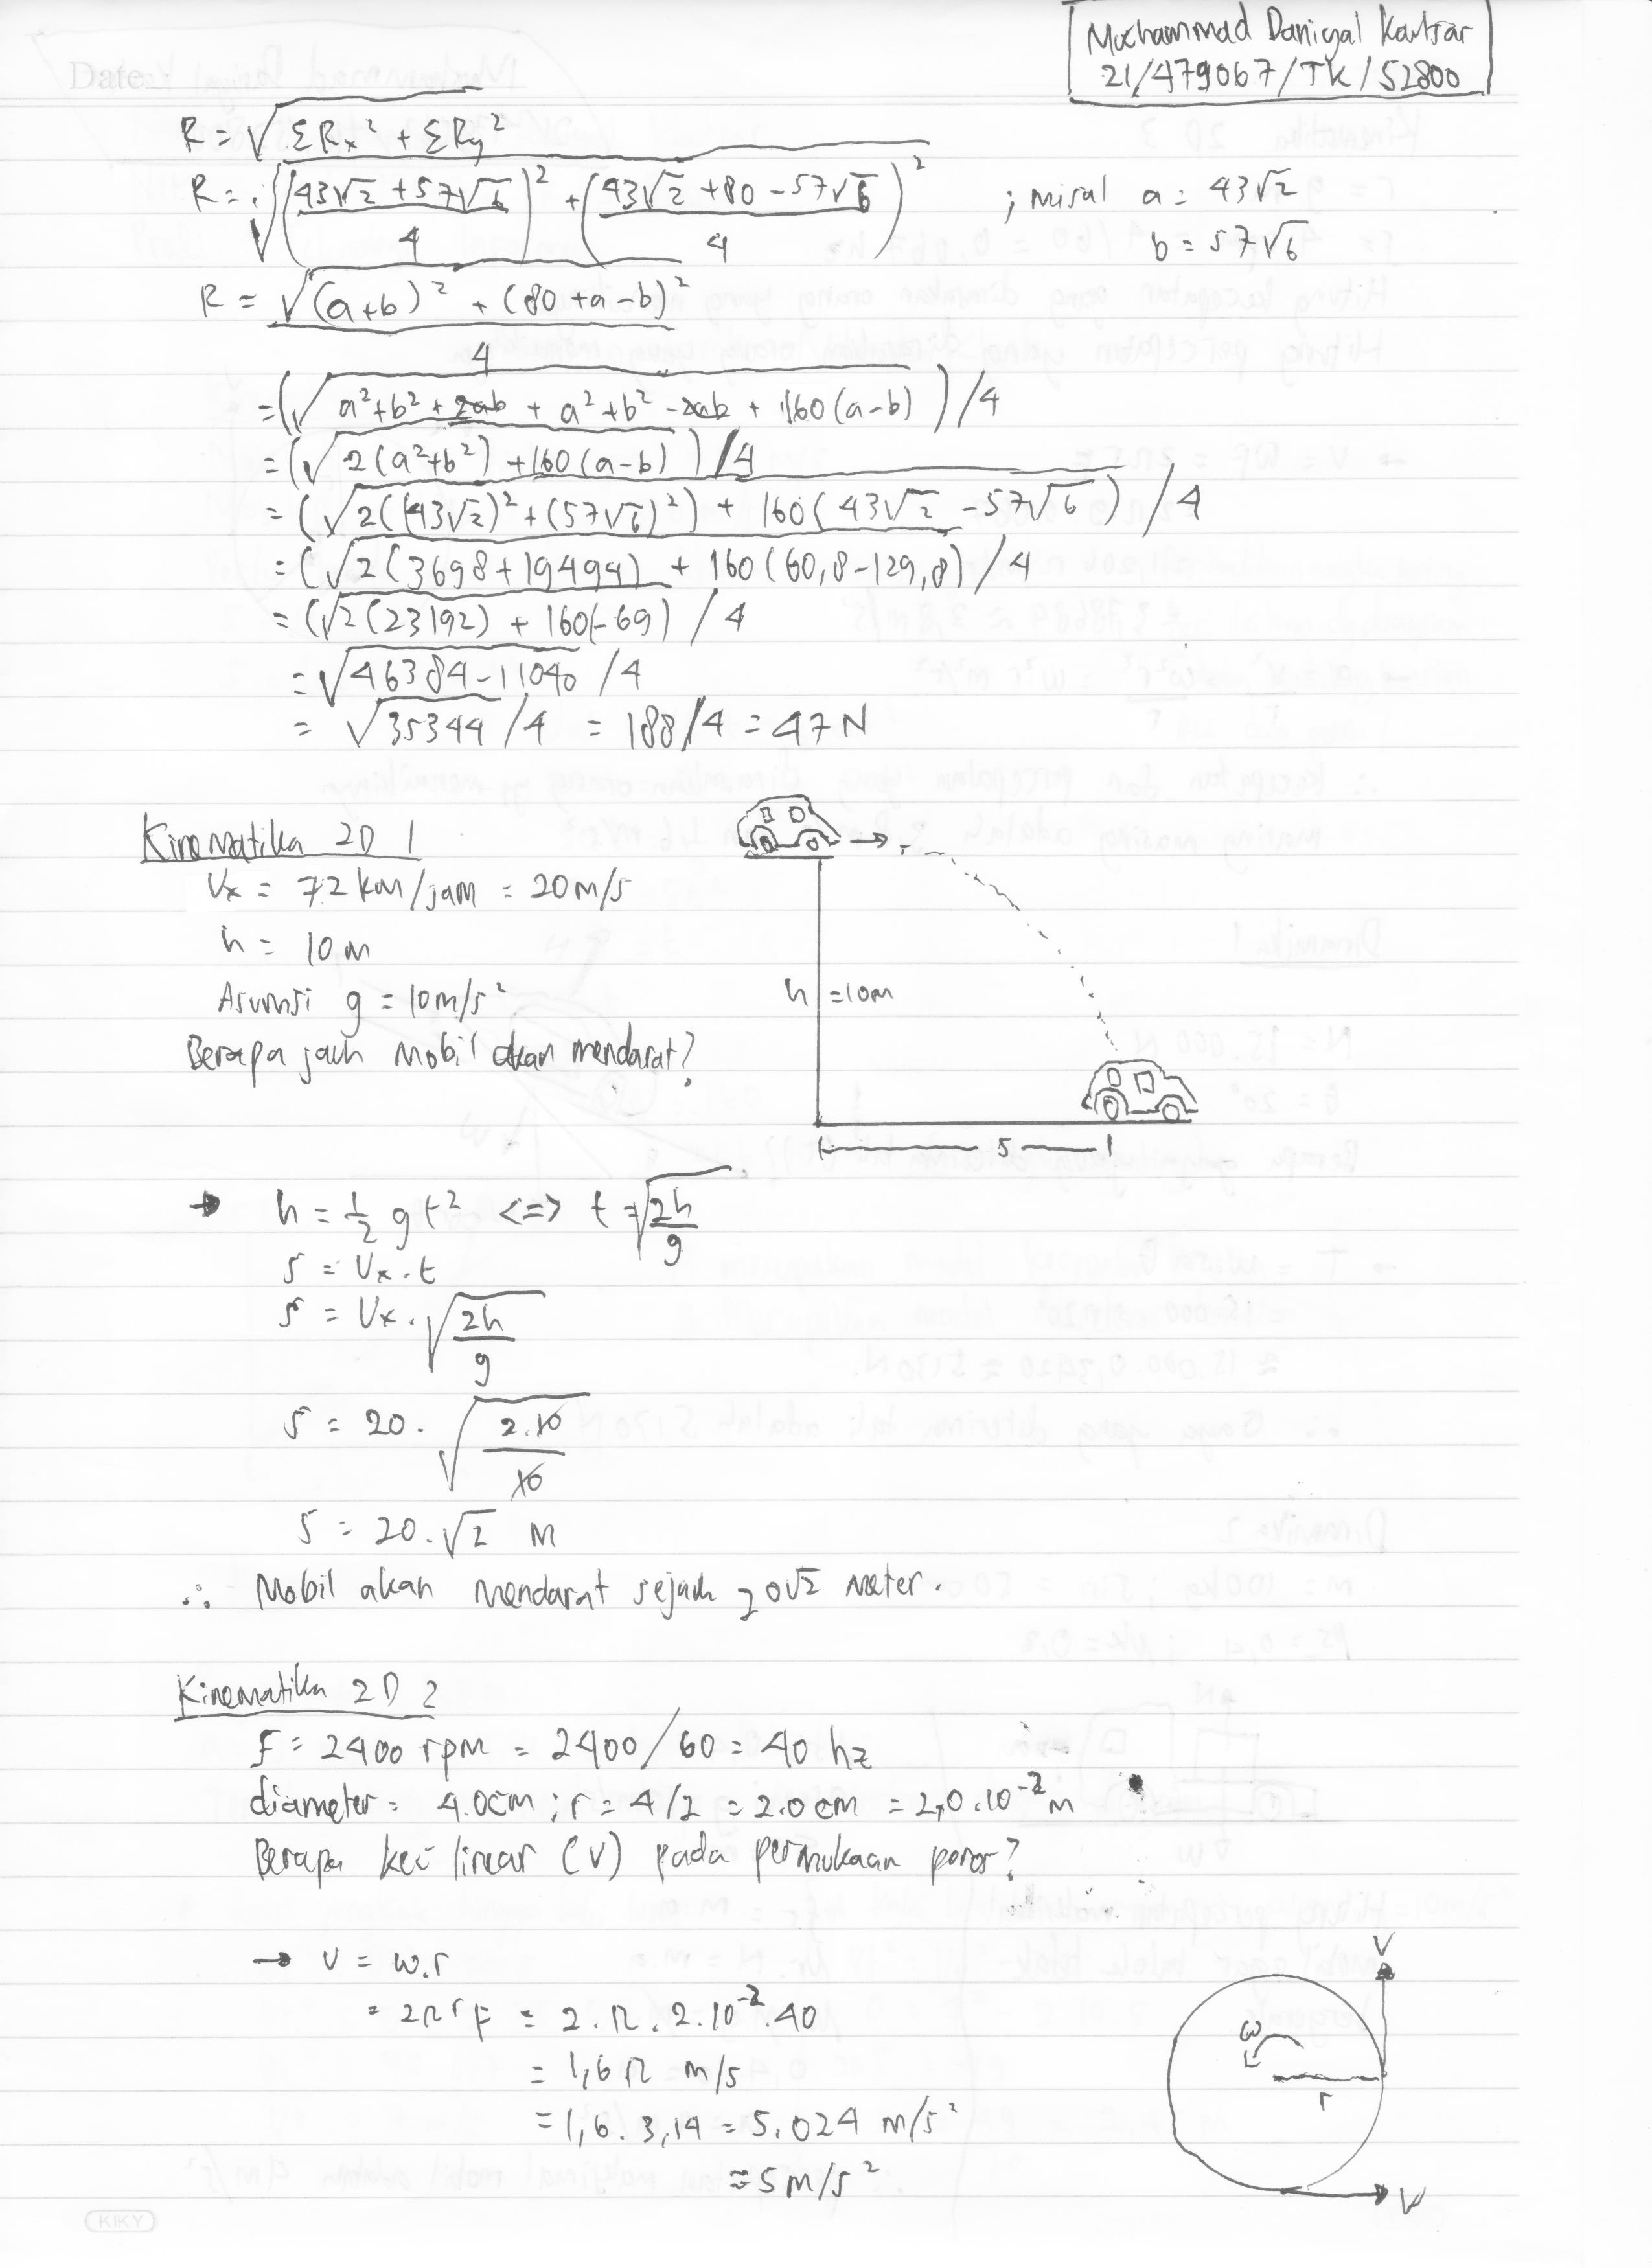 Muchammad Daniyal Kautsar
21/479067/TK/52800
Date:
R = √ΣRx² + ΣRy²
R = √((43√2 + 57√6)/4)² + ((43√2 + 80 - 57√6)/4)² ; misal a = 43√2
b = 57√6
R = √(a+b)² + (80+a-b)² / 4
= (√a²+b²+2ab + a²+b²-2ab + 160(a-b)) / 4
= (√2(a²+b²) + 160(a-b)) / 4
= (√2((43√2)² + (57√6)²) + 160(43√2 - 57√6)) / 4
= (√2(3698+19494) + 160(60,8-129,8) / 4
= (√2(23192) + 160(-69) / 4
= √46384-11040 / 4
= √35344 / 4 = 188/4 = 47 N
Kinematika 2D 1
Vx = 72 km/jam = 20 m/s
h = 10 m
Asumsi g = 10 m/s²
Berapa jauh mobil akan mendarat?
h = 10m
s
→ h = 1/2 gt² <=> t = √2h/g
s = Vx . t
s = Vx . √2h/g
s = 20 . √2.10/10
s = 20 . √2 m
∴ Mobil akan mendarat sejauh 20√2 meter.
Kinematika 2D 2
f = 2400 rpm = 2400/60 = 40 hz
diameter = 4.0cm ; r = 4/2 = 2.0 cm = 2,0.10⁻² m
Berapa kec linear (v) pada permukaan poros?
→ v = ω.r
= 2πrf = 2.π.2.10⁻².40
= 1,6π m/s
= 1,6 . 3,14 = 5.024 m/s²
≈ 5 m/s²
V
ω
r
V
KIKY